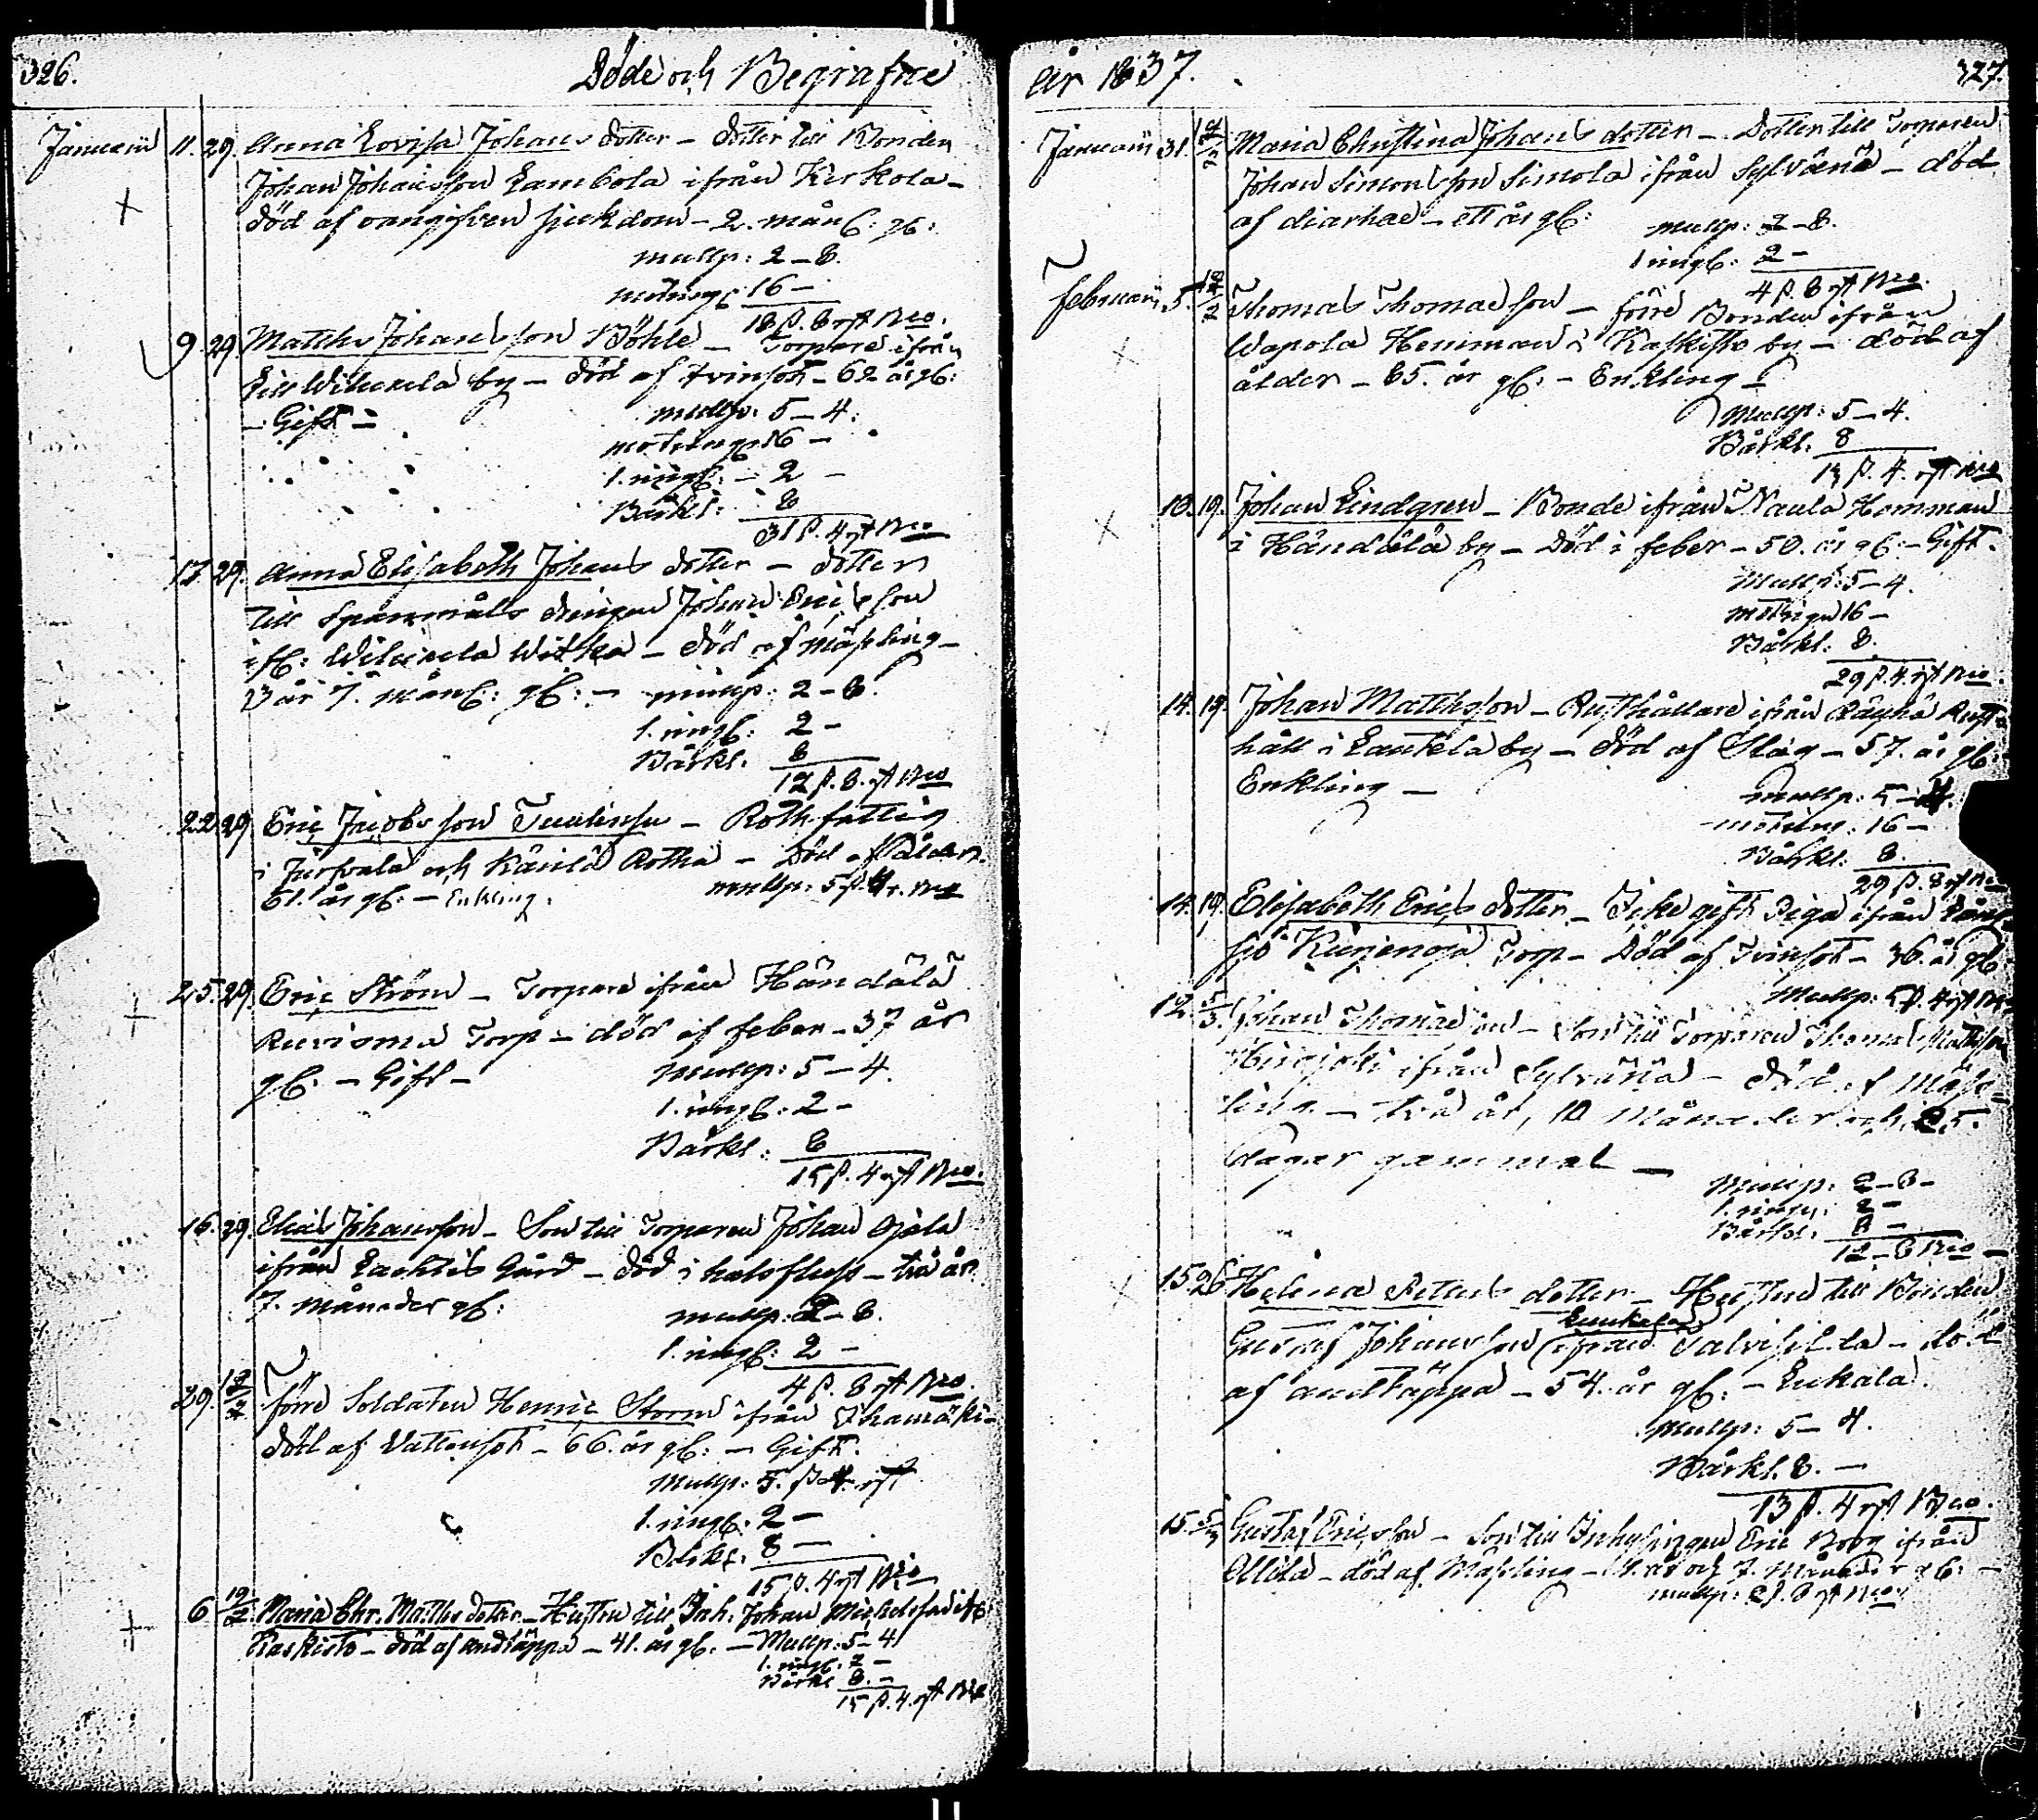 326. Döde och Begrafne
Januarii 11. 29. Anna Lovisa Johans dotter – dotter till Bonden
Johan Johansson Lambola ifrån Kirkola –
död af oangifven sjukdom – 2. mån: gl:
mullp: 2 – 8.
16 –
18 β. 8 rst Bco.
9. 29. Matths Johansson Böhle – Torpare ifrån
by – död af tvinsot – 62 år gl:
– Gift – mullp: 5 – 4.
16 –
1. ringl: – 2 –
Bårkl: 8
31 β. 4 rst Bco
17. 29. Anna Elisabeth Johans dotter – dotter
till Spanmåls drängen Johan Ericsson
– död af mäsling –
år 7. mån: gl: – mullp: 2 – 8.
1. ringl: 2 –
Bårkl. 8
12 β. 8. rst Bco
22. 29. Eric Jacobsson – Rothfattig
i och Rotha – död af ålder.
61. år gl: – Enkling. mullp: 5 β. 4 r. Bco
25. 29. Eric Ström – Torpare ifrån Händälä
Torp – död af feber – 37 år
gl: – Gift – mullp: 5 – 4.
1. ringl: 2 –
Bårkl: 8
15 β. 4 rst Bco.
16. 29. Elias Johansson – Son till Torparen Johan Ojala
ifrån Lachtis Gård – död i halsfluss – två år
7. månader gl: mullp: 2 – 8.
1. ringl: 2 –
4 β. 8 rst Bco.
29. 12/2 förre Soldaten Henric Storm ifrån
död af Vattusot – 66. år gl: – Gift.
mullp: 5. β 4. rst
1. ringl: 2 –
Bårkl. 8 –
15 β. 4 rst Bco
6 19/2 Maria Chr. Matths dotter – Hustru till Inh. Johan Michelsson
Kaskisto – död af andtäppa – 41. år gl. – Mullp: 5 – 4
1. ringl. 2 –
Bårkl 8. –
15 β. 4. rst Bco
år 1837. 327.
Januarii 31. 12/2 Maria Christina Johans dotter – Dotter till Torparen
Johan Simonsson Simola ifrån Sylvänä – död
af diarhae – ett år gl: mullp: 2 – 8.
1 ringl: 2 –
4 β. 8 rst Bco.
Februarii 5. 12/2 Thomas Thomasson – förre Bonden ifrån
Wapola Hemman i Kaskisto by – död af
ålder – 85. år gl: – Enkling –
Mullp: 5 – 4.
Bårkl. 8
13 β. 4. rst Bco
10. 19. Johan Lindgren – Bonde ifrån Naula Hemman
i Händälä by – död i feber – 50. år gl: – Gift.
Mullp: 5 – 4.
16 –
Bårkl: 8.
29 β. 4. rst Bco.
14. 19. Johan Mattsson – Rusthållare ifrån Rust=
håll i Lautela by – död af Slag – 57. år gl: –
Enkling – mullp: 5 – 4.
16 –
Bårkl: 8.
29 β.
14. 19. Elisabeth Erics dotter – Icke gift Piga ifrån
Torp – död af Tvinsot – 36. år gl:
Mullp: 5 β. 4 rst Bco
12. 5/3. Johan Thomasson – Son till Torparen Thomas Mattsson
Hirsjoki ifrån Sylvänä – död af Mäss=
ling – två år, 10 Månader och 25.
dagar gammal –
Mullp: 2 – 8 –
1. ringl: 2 –
Bårkl. 8 –
12 – 8 Bco –
15. 26 Helena Petters dotter – Hustru till Bonden
Gustaf Johansson ifrån – död
af andtäppa – 54. år gl: –
Mullp: 5 – 4.
Bårkl. 8. –
13 β. 4 rst Bco.
15. 5/3 Gustaf Ericsson – Son till Inhysingen Eric Borg ifrån
Ollila – död af Mässling – år och 7. Månader gl: –
mullp: 2 β. 8 rst Bco.